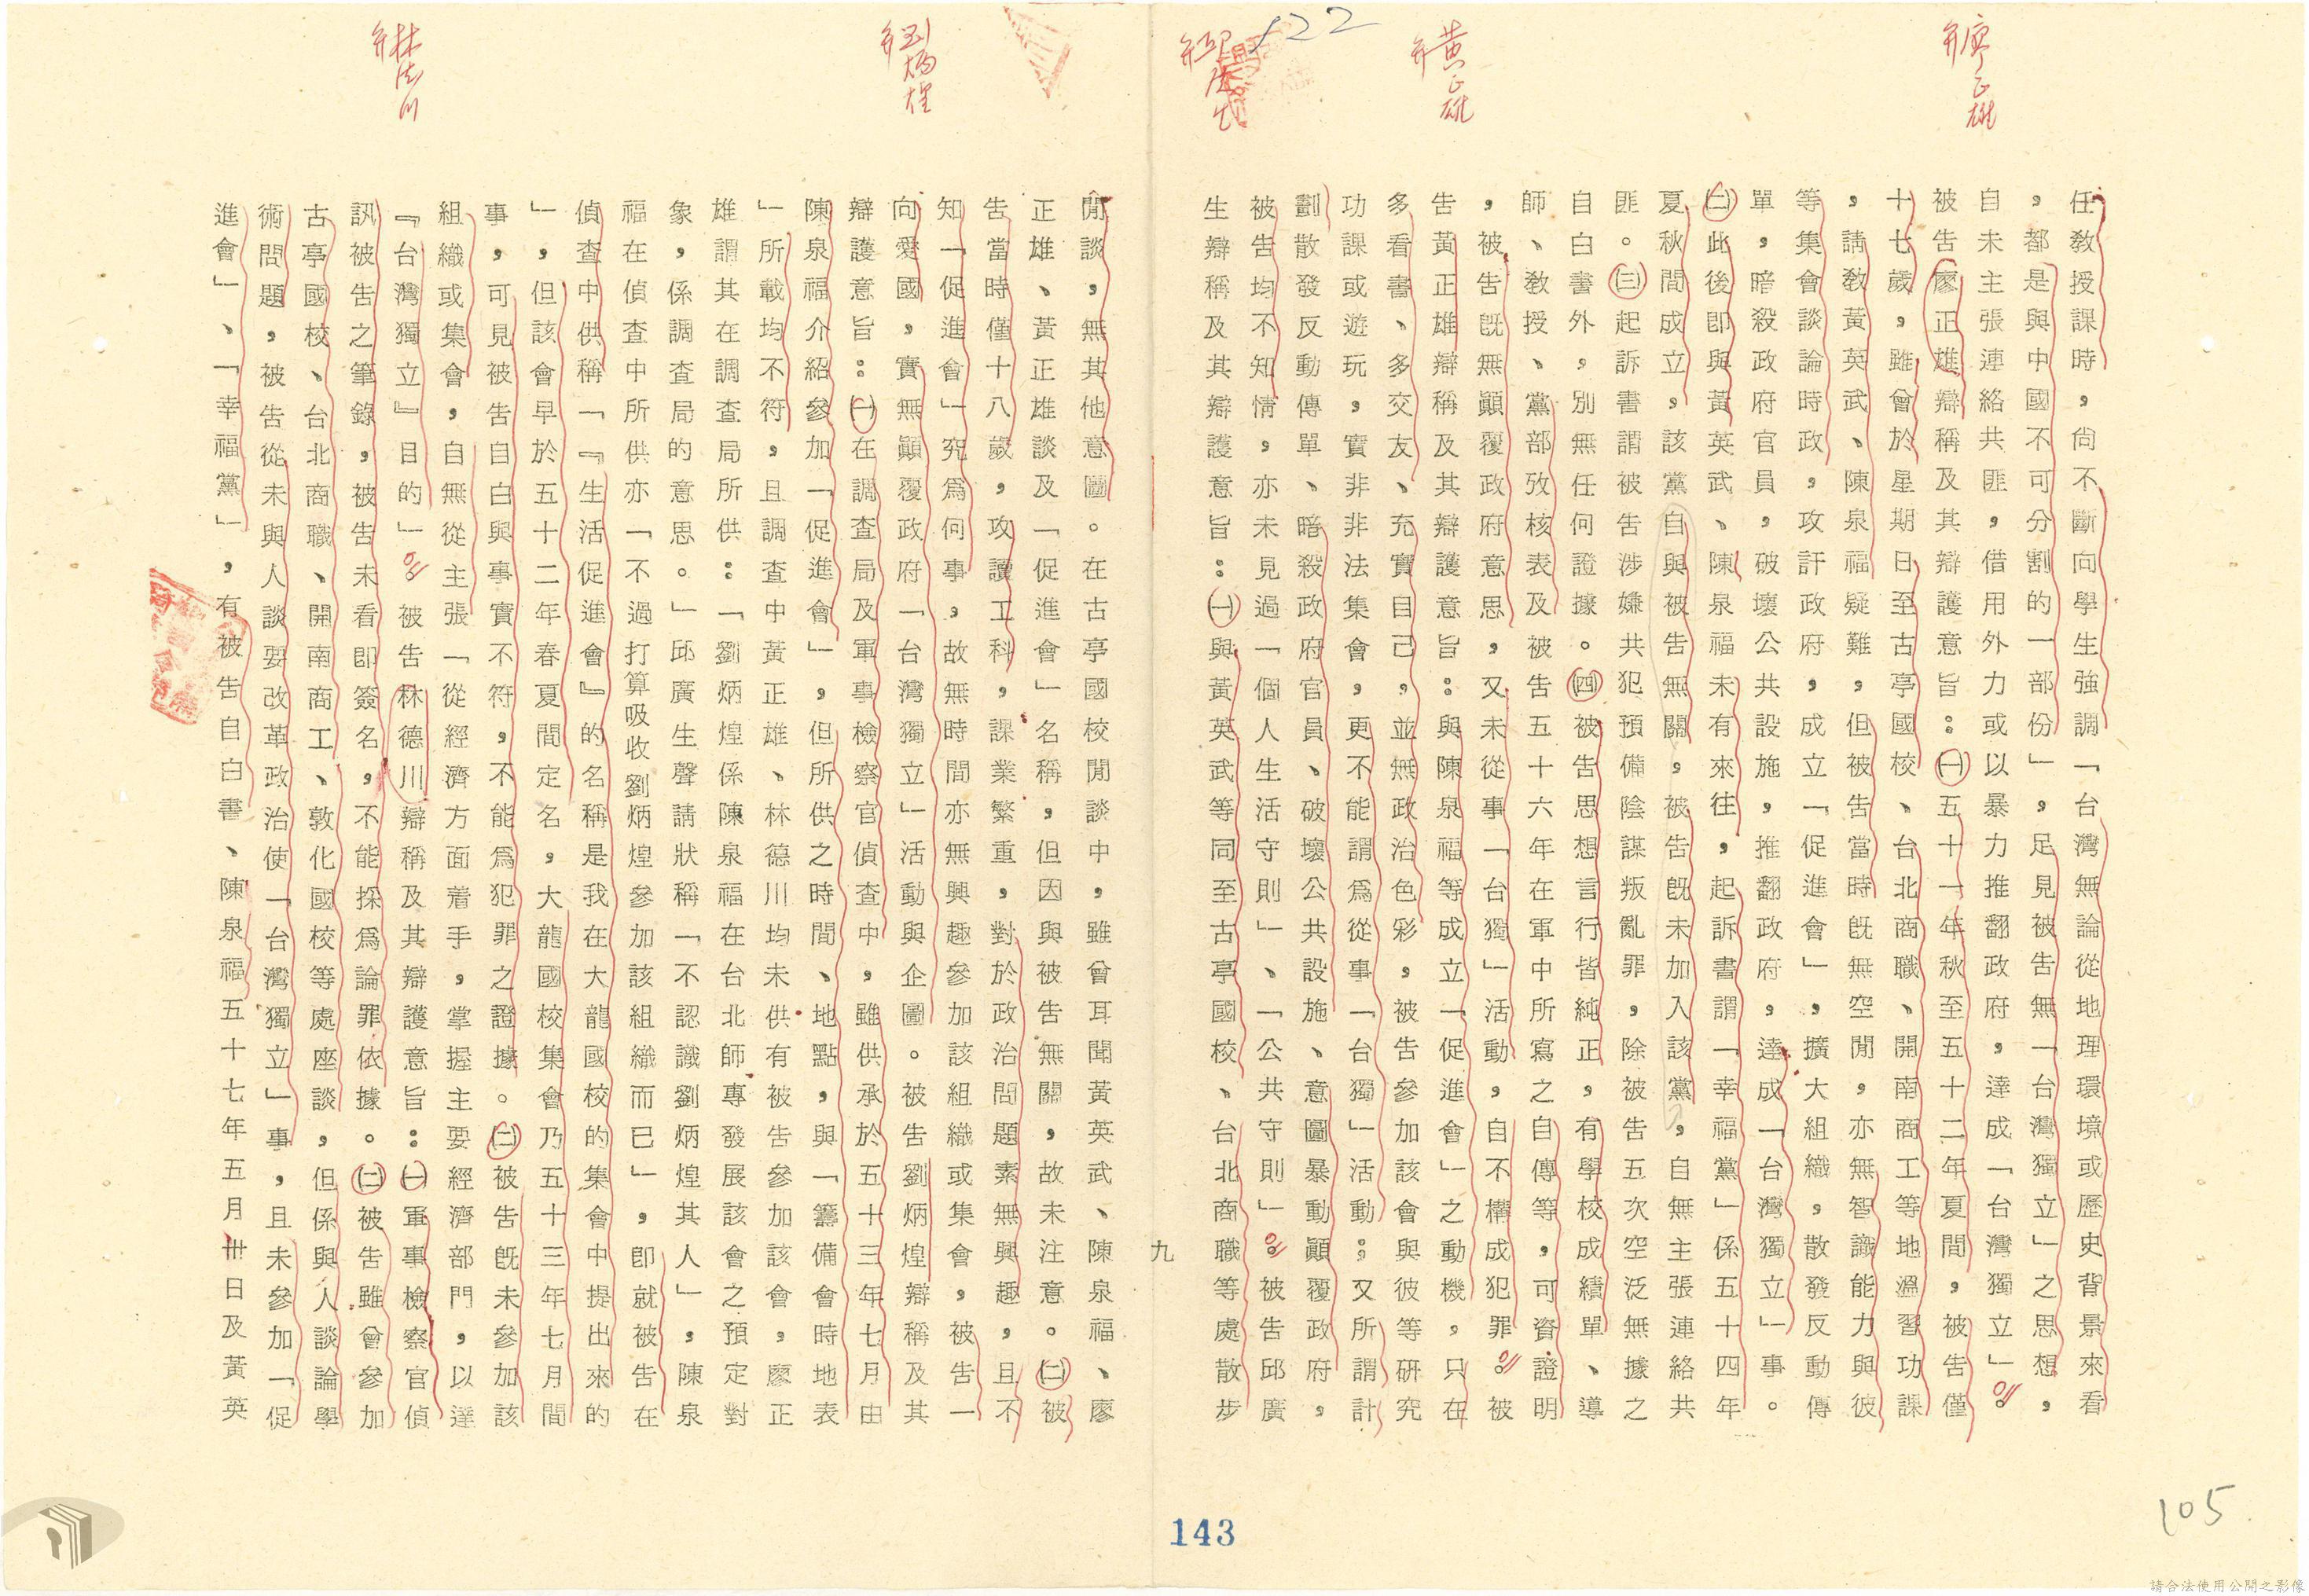 122
廖正雄
黃正雄
劉炳煌
林德川
任教授課時，尙不斷向學生強調「台灣無論從地理環境或歷史背景來看
，都是與中國不可分割的一部份」，足見被告無「台灣獨立」之思想，
自未主張連絡共匪，借用外力或以暴力推翻政府，達成「台灣獨立」。
被告廖正雄辯稱及其辯護意旨：㈠五十一年秋至五十二年夏間，被告僅
十七歲，雖會於星期日至古亭國校、台北商職、開南商工等地溫習功課
，請教黃英武、陳泉福疑難，但被告當時旣無空閒，亦無智識能力與彼
等集會談論時政，攻訐政府，成立「促進會」，擴大組織，散發反動傳
單，暗殺政府官員，破壞公共設施，推翻政府，達成「台灣獨立」事。
㈡此後即與黃英武、陳泉福未有來往，起訴書謂「幸福黨」係五十四年
夏秋間成立，該黨自與被告無關，被告旣未加入該黨，自無主張連絡共
匪。㈢起訴書謂被告涉嫌共犯預備陰謀叛亂罪，除被告五次空泛無據之
自白書外，別無任何證據。㈣被告思想言行皆純正，有學校成績單、導
師、教授、黨部攷核表及被告五十六年在軍中所寫之自傳等，可資證明
，被告旣無顚覆政府意思，又未從事「台獨」活動，自不構成犯罪。被
告黃正雄辯稱及其辯護意旨：與陳泉福等成立「促進會」之動機，只在
多看書、多交友、充實自己，並無政治色彩，被告參加該會與彼等研究
功課或遊玩，實非非法集會，更不能謂爲從事「台獨」活動；又所謂計
劃散發反動傳單、暗殺政府官員、破壞公共設施、意圖暴動顚覆政府，
被告均不知情，亦未見過「個人生活守則」、「公共守則」。被告邱廣
生辯稱及其辯護意旨：㈠與黃英武等同至古亭國校、台北商職等處散步
九
閒談，無其他意圖。在古亭國校閒談中，雖曾耳聞黃英武、陳泉福、廖
正雄、黃正雄談及「促進會」名稱，但因與被告無關，故未注意。㈡被
告當時僅十八歲，攻讀工科，課業繁重，對於政治問題素無興趣，且不
知「促進會」究爲何事，故無時間亦無興趣參加該組織或集會，被告一
向愛國，實無顚覆政府「台灣獨立」活動與企圖。被告劉炳煌辯稱及其
辯護意旨：㈠在調查局及軍事檢察官偵查中，雖供承於五十三年七月由
陳泉福介紹參加「促進會」，但所供之時間、地點，與「籌備會時地表
」所載均不符，且調查中黃正雄、林德川均未供有被告參加該會，廖正
雄謂其在調查局所供：「劉炳煌係陳泉福在台北師專發展該會之預定對
象，係調查局的意思。」邱廣生聲請狀稱「不認識劉炳煌其人」，陳泉
福在偵查中所供亦「不過打算吸收劉炳煌參加該組織而已」，即就被告在
偵查中供稱「『生活促進會』的名稱是我在大龍國校的集會中提出來的
」，但該會早於五十二年春夏間定名，大龍國校集會乃五十三年七月間
事，可見被告自白與事實不符，不能爲犯罪之證據。㈡被告旣未參加該
組織或集會，自無從主張「從經濟方面着手，掌握主要經濟部門，以達
『台灣獨立』目的」。被告林德川辯稱及其辯護意旨：㈠軍事檢察官偵
訊被告之筆錄，被告未看即簽名，不能採爲論罪依據。㈡被告雖曾參加
古亭國校、台北商職、開南商工、敦化國校等處座談，但係與人談論學
術問題，被告從未與人談要改革政治使「台灣獨立」事，且未參加「促
進會」、「幸福黨」，有被告自白書、陳泉福五十七年五月卅日及黃英
143
105
請合法使用公開之影像